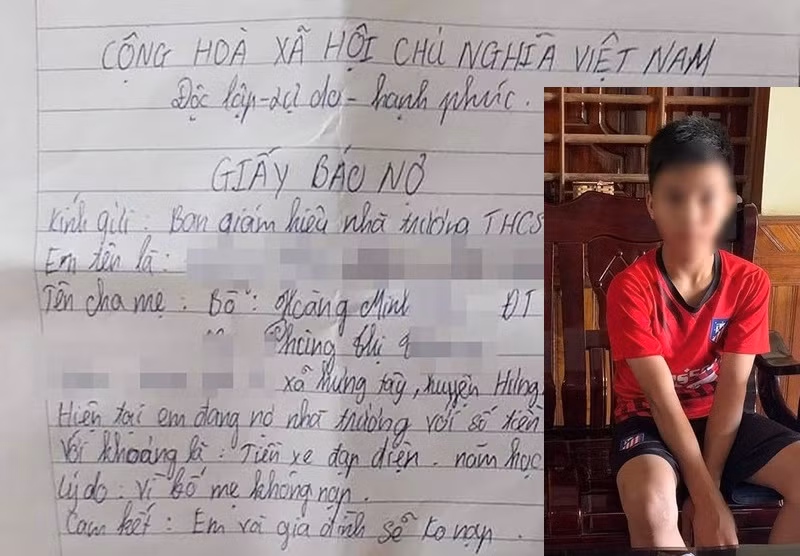 CỘNG HOÀ XÃ HỘI CHỦ NGHĨA VIỆT NAM
Độc lập - tự do - hạnh phúc.
GIẤY BÁO NỢ
Kính gửi: Ban giám hiệu nhà trường THCS
Em tên là:
Tên cha mẹ: Bố: Hoàng Minh ĐT
Phùng thị
xã Hưng tây, huyện Hưng
Hiện tại em đang nợ nhà trường với số tiền
Với khoảng là: Tiền xe đạp điện. năm học
Lý do: vì bố mẹ không nạp.
Cam kết: Em và gia đình sẽ ko nạp.